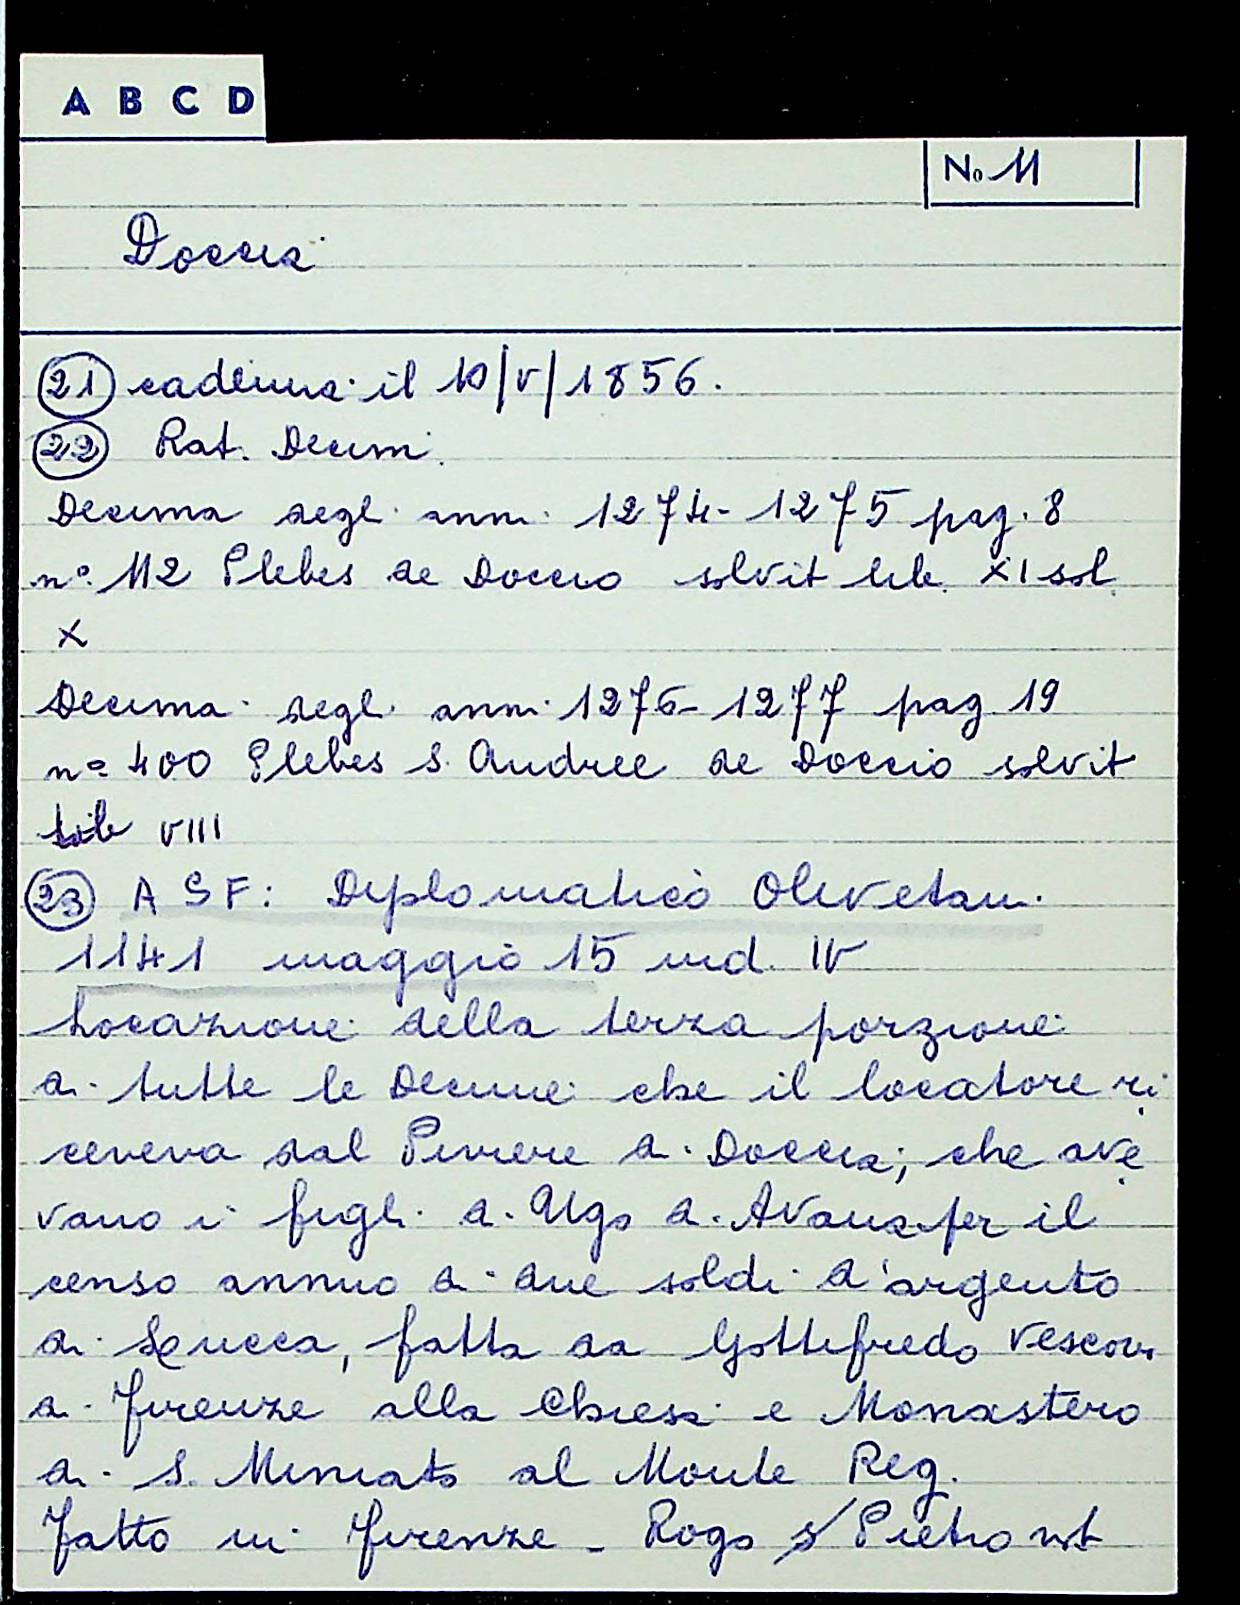 A B C D
No 11
Doccia
21 cadeva il 10/V/1856.
22 Rat. Decim.
Decima degl. ann. 1274-1275 pag. 8
n° 112 Plebes de Doccio solvit lib. XI sol
X
Decima degl. ann. 1276-1277 pag 19
n° 400 Plebes S. Andree de Doccio solvit
lib VIII
23 A S F: Diplomatico Olivetan.
1141 maggio 15 ind. IV
Locazione della terza porzione
di tutte le Decime che il locatore ri
ceveva dal Piviere di Doccia; che ave
vano i figli di Ugo di Avana per il
censo annuo di due soldi d'argento
di Lucca, fatta da Gottifredo Vescovo
di Firenze alla Chiesa e Monastero
di S. Miniato al Monte Reg.
Fatto in Firenze - Rogo s/ Pietro not